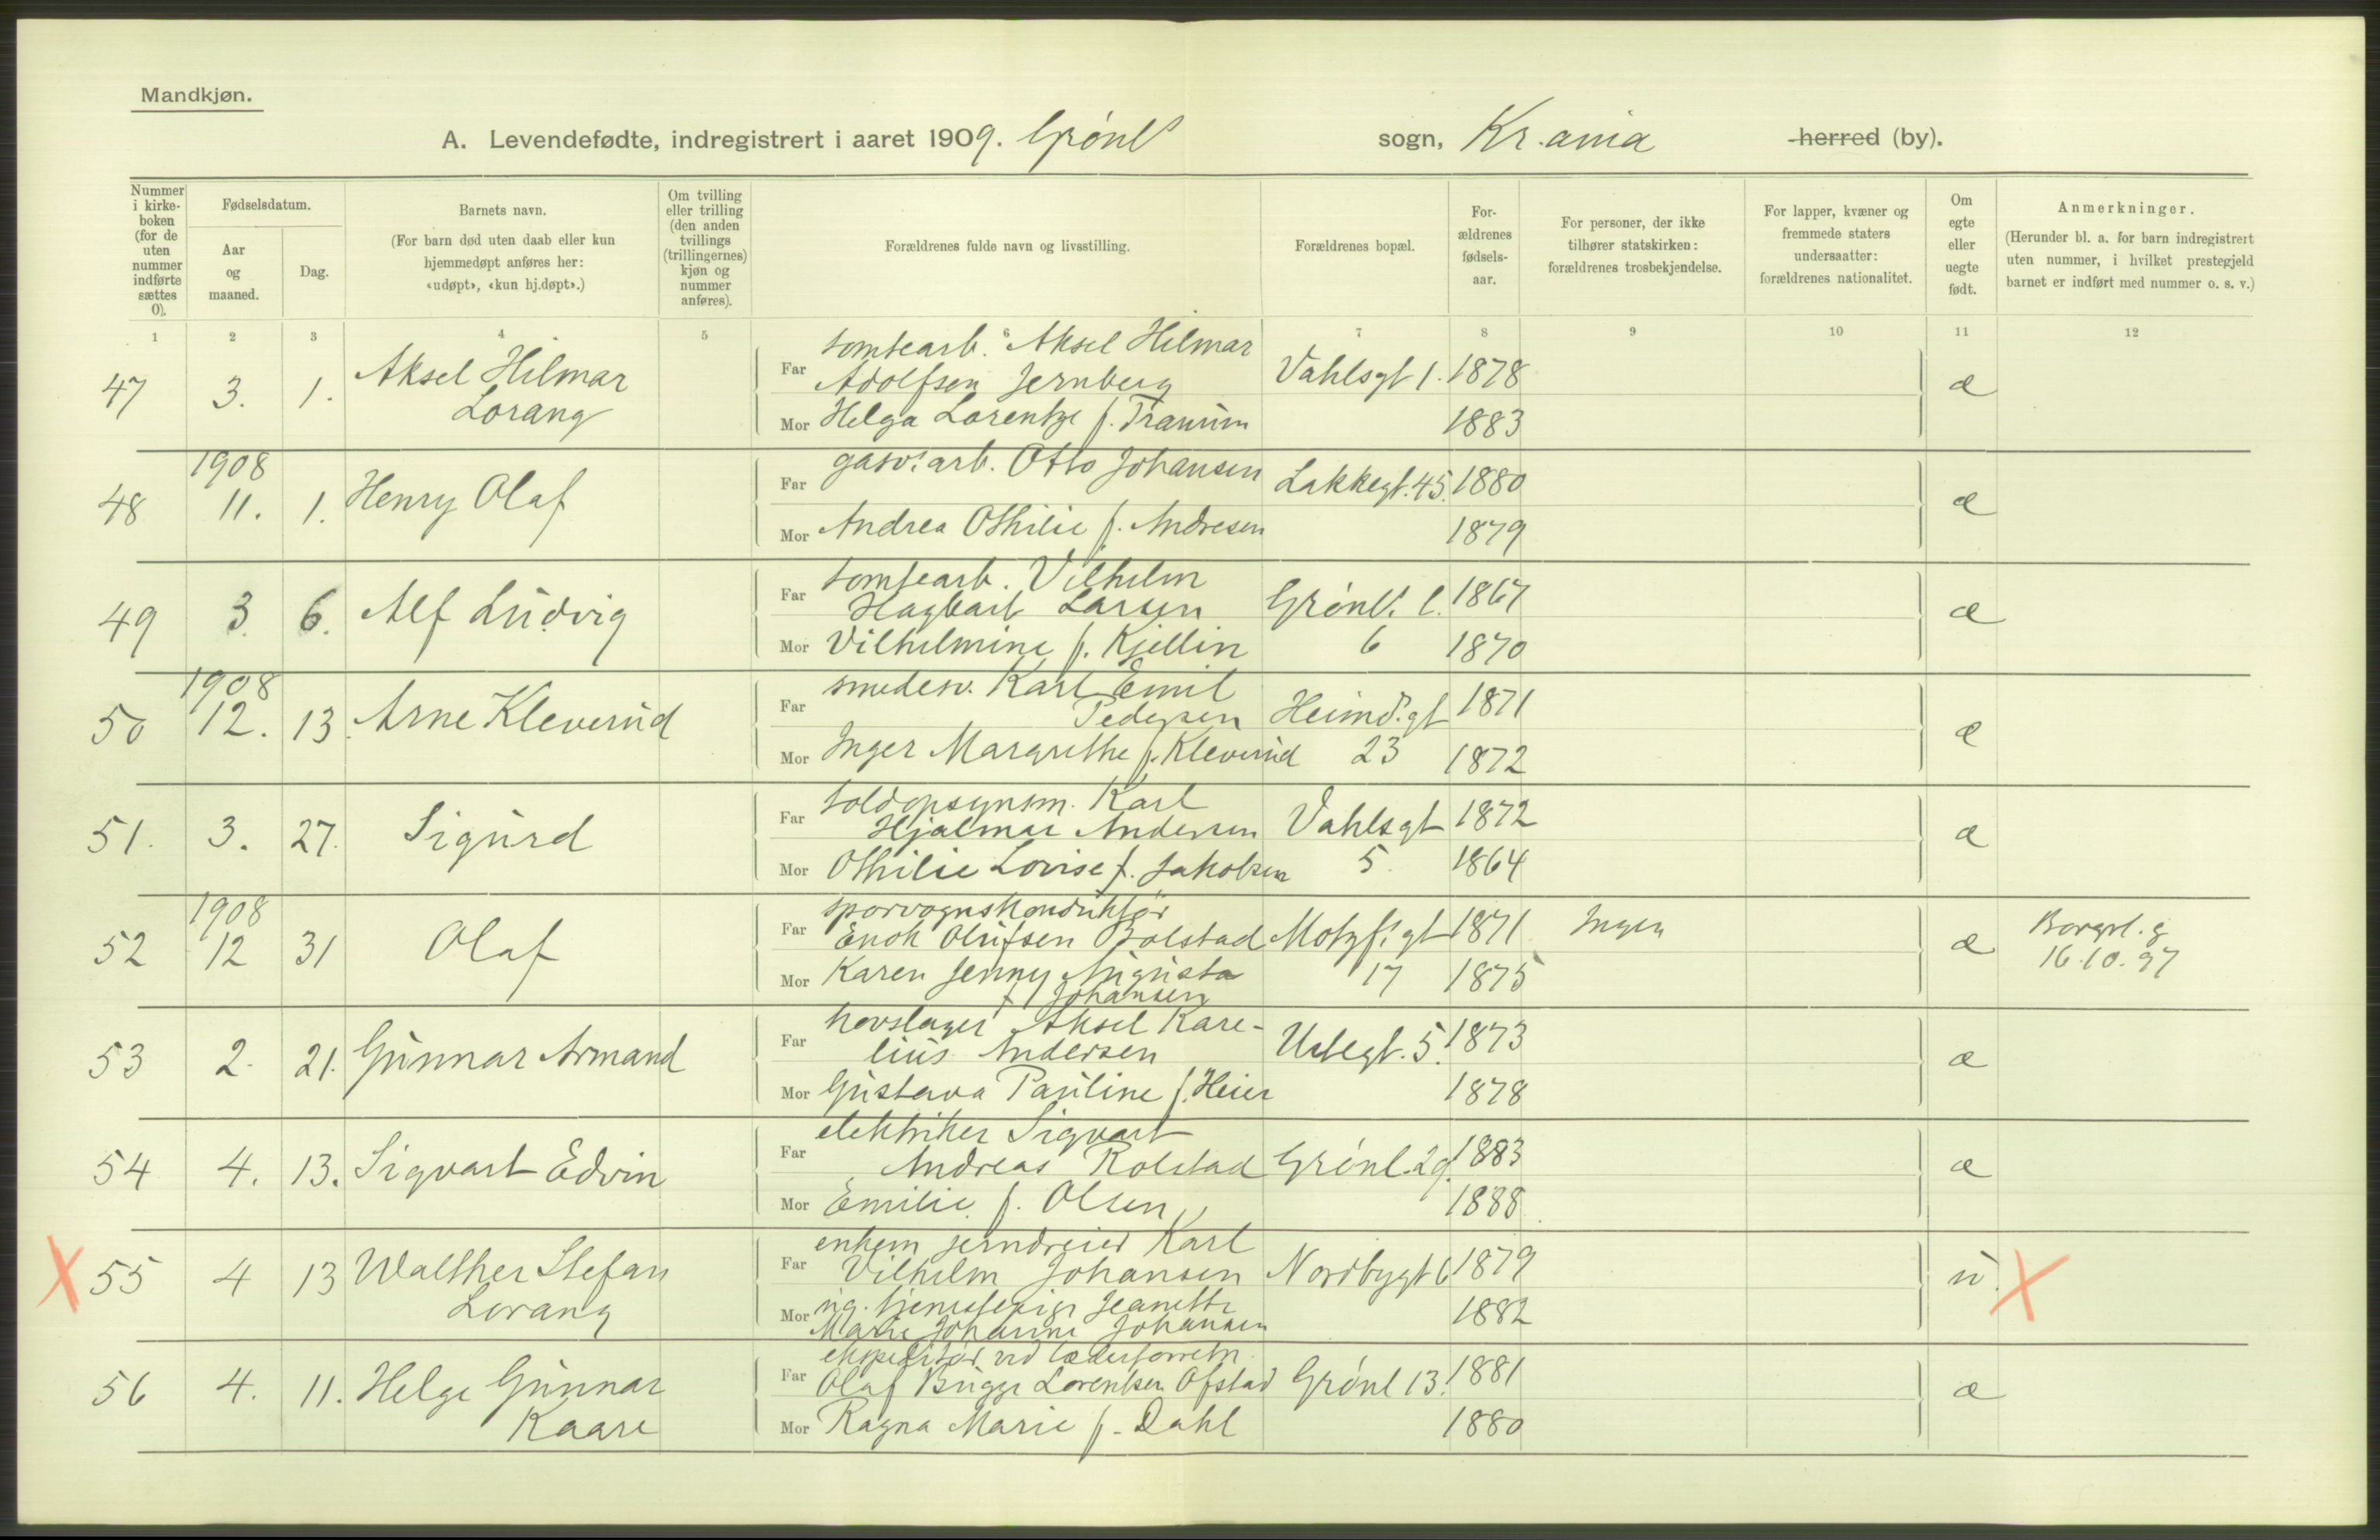 Mandkjøn.
A. Levendefødte, indregistrert i aaret 1909. Grønl. sogn, Kr.ania herred (by).
Nummer i kirke-boken (for de uten nummer indførte sættes 0).
Fødselsdatum.
Aar og maaned.
Dag.
Barnets navn.
(For barn død uten daab eller kun hjemmedøpt anføres her: «udøpt», «kun hj.døpt».)
Om tvilling eller trilling (den anden tvillings (trillingernes) kjøn og nummer anføres).
Forældrenes fulde navn og livsstilling.
Forældrenes bopæl.
For-ældrenes fødsels-aar.
For personer, der ikke tilhører statskirken: forældrenes trosbekjendelse.
For lapper, kvæner og fremmede staters undersaatter: forældrenes nationalitet.
Om egte eller uegte født.
Anmerkninger.
(Herunder bl. a. for barn indregistrert uten nummer, i hvilket prestegjeld barnet er indført med nummer o. s. v.)
1 2 3 4 5 6 7 8 9 10 11 12
47 3. 1. Aksel Hilmar Lorang
Far tomtearb. Aksel Hilmar
Adolfsen Jernberg Vahlsgt 1. 1878 æ
Mor Helga Lorentze f. Tranum 1883
1908
48 11. 1. Henry Olaf
Far gasv.arb. Otto Johansen Lakkegt. 45. 1880 æ
Mor Andrea Othilie f. Andresen 1879
49 3. 6. Alf Ludvig
Far tomtearb. Vilhelm
Hagbart Larsen Grønl. l. 1867 æ
Mor Vilhelmine f. Kjellin 6 1870
1908
50 12. 13. Arne Kleverud
Far smedesv. Karl Emil
Pedersen Heimd.gt 1871 æ
Mor Inger Margrethe f. Kleverud 23 1872
51. 3. 27. Sigurd
Far toldopsynsm. Karl
Hjalmar Andersen Vahlsgt 1872 æ
Mor Othilie Lovise f. Jakobsen 5. 1864
1908
52 12 31 Olaf
Far sporvognskonduktør
Enok Olufsen Bolstad Motzf.gt 1871 Ingen æ Borgerl. g.
16.10.97
Mor Karen Jenny Augusta 17 1875
f. Johansen
53 2. 21. Gunnar Armand
Far hovslager Aksel Kare-
lius Andersen Urtegt. 5. 1873 æ
Mor Gustava Pauline f. Heier 1878
54 4. 13. Sigvart Edvin
Far elektriker Sigvart
Andreas Rolstad Grønl. 29. 1883 æ
Mor Emilie f. Olsen 1888
X 55 4 13 Walther Stefan Lorang
Far enkem. jerndreier Karl
Vilhelm Johansen Nordbygt 6 1879 u. X
Mor ug. tjenestepige Jeanette 1882
Marie Johanne Johansen
56 4. 11. Helge Gunnar Kaare
Far ekspeditør ved læderforretn.
Olaf Brigge Lorentsen Ofstad Grønl 13. 1881 æ
Mor Ragna Marie f. Dahl 1880